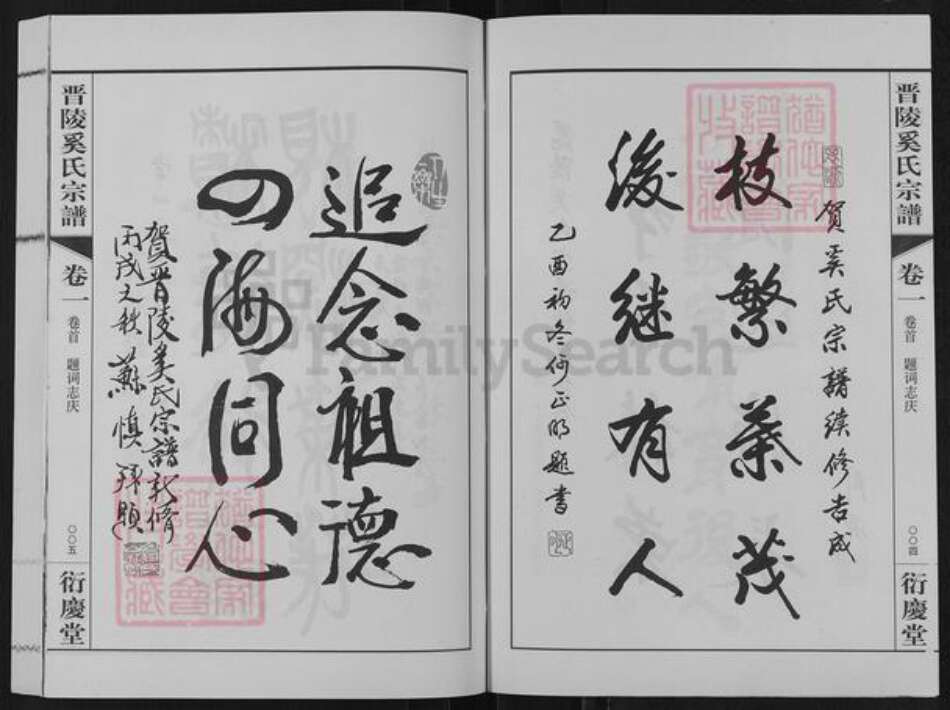 晋陵奚氏宗譜
卷一
卷首 題词志庆
〇〇四
衍慶堂
贺奚氏宗譜续修告成
枝繁葉茂
後继有人
乙酉初冬何正明题書
追念祖德
四海同心
賀晋陵奚氏宗譜新修
丙戌之秋 蘇慎 拜題
晋陵奚氏宗譜
卷一
卷首 題词志庆
〇〇五
衍慶堂
FamilySearch